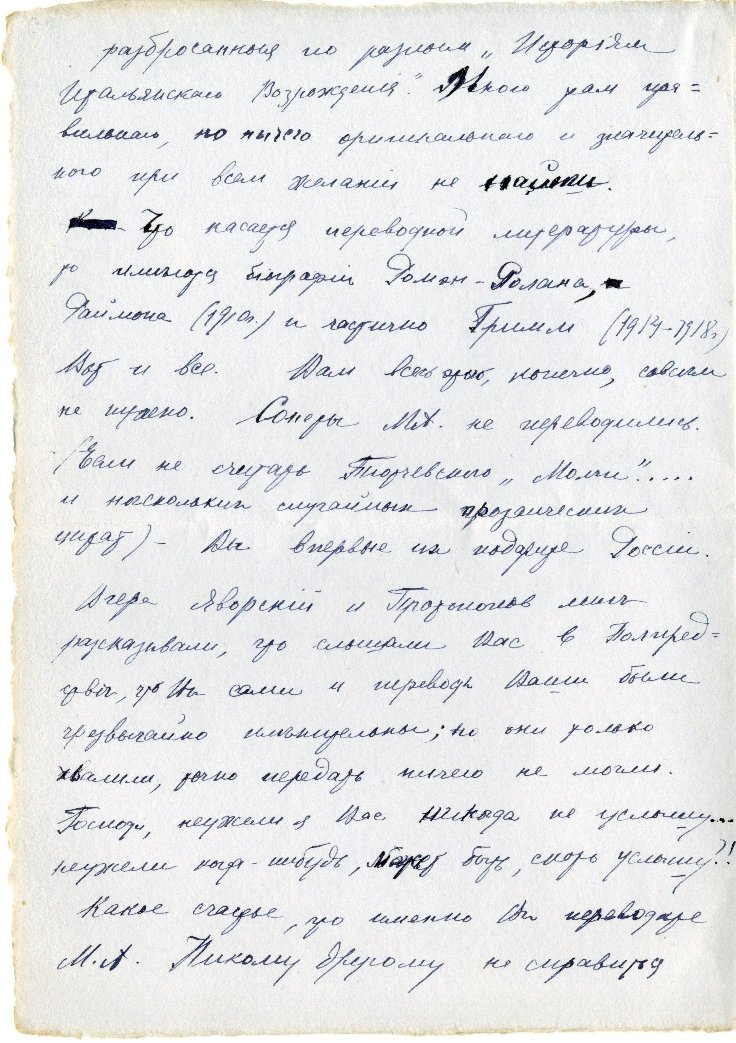 разбросанныя по разным „Исторіям
Итальянскаго Возрожденія“. Много там пра=
вильнаго, но ничего оригинальнаго и значитель=
наго при всем желаніи не найти.
Что касается переводной литературы,
то имеются біографіи Ромэн-Ролана,
Раймона (1910г.) и частично Гримм (1914-1918г.)
Вот и все. Вам все это, конечно, совсем
не нужно. Сонеты М.А. не переводились.
(Если не считать Тютчевского „Молчи“.....
и нескольких случайных прозаических
цитат) – Вы впервые их подарите Россіи.
Вчера Яворскій и Протопопов мне
рассказывали, что слышали Вас в Полпред=
стве, что Вы сами и переводы Ваши были
чрезвычайно значительны; но они только
хвалили, точно передать ничего не могли.
Господи, неужели я Вас никогда не услышу...
неужели когда-нибудь, может быть, скоро услышу?!
Какое счастье, что именно Вы переводите
М.А. Никому другому не справиться